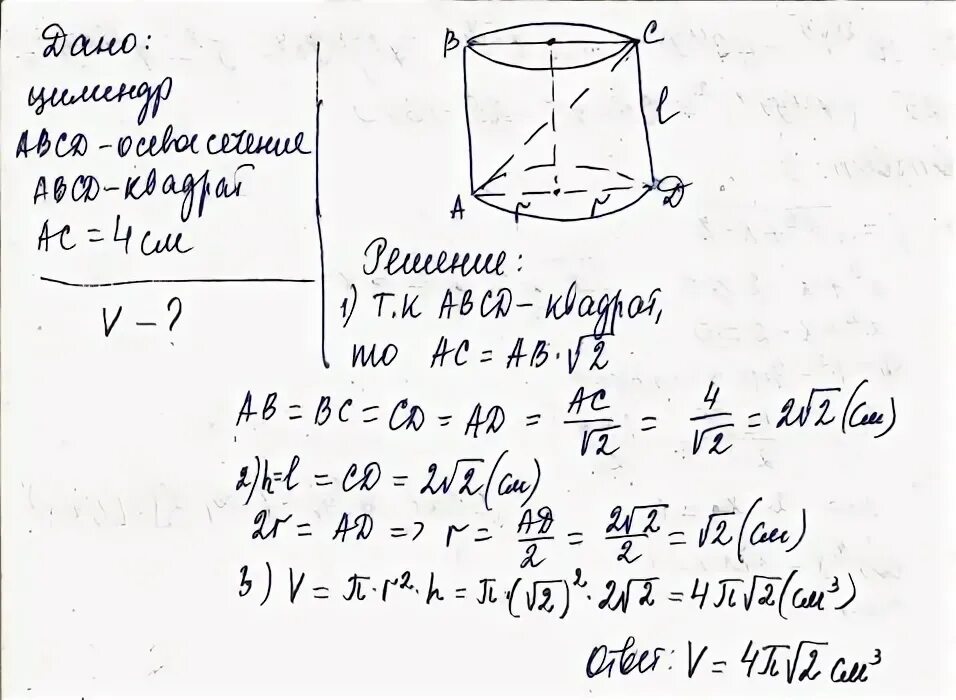 Дано:
цилиндр
ABCD - осевое сечение
ABCD - квадрат
AC = 4 см
V - ?
B C
l
A r r D
Решение:
1) Т.К ABCD - квадрат,
то AC = AB · √2
AB = BC = CD = AD = AC/√2 = 4/√2 = 2√2 (см)
2) h = l = CD = 2√2 (см)
2r = AD => r = AD/2 = 2√2/2 = √2 (см)
3) V = π · r² · h = π · (√2)² · 2√2 = 4π√2 (см³)
Ответ: V = 4π√2 см³